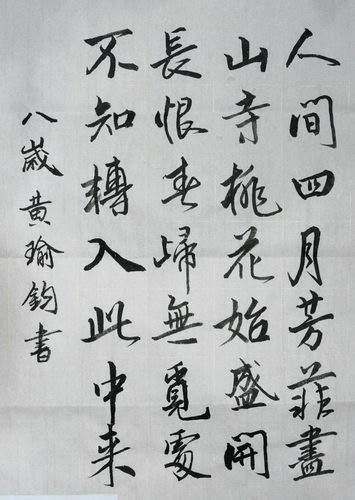 人間四月芳菲盡
山寺桃花始盛開
長恨春歸無覓處
不知轉入此中来
八歲黄瑜鈞書